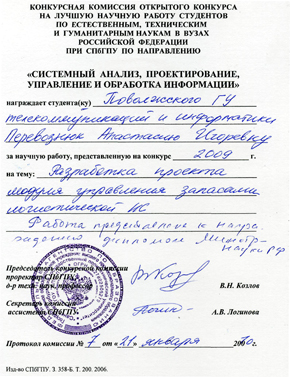 КОНКУРСНАЯ КОМИССИЯ ОТКРЫТОГО КОНКУРСА
НА ЛУЧШУЮ НАУЧНУЮ РАБОТУ СТУДЕНТОВ
ПО ЕСТЕСТВЕННЫМ, ТЕХНИЧЕСКИМ
И ГУМАНИТАРНЫМ НАУКАМ В ВУЗАХ
РОССИЙСКОЙ ФЕДЕРАЦИИ
ПРИ СПбГПУ ПО НАПРАВЛЕНИЮ
«СИСТЕМНЫЙ АНАЛИЗ, ПРОЕКТИРОВАНИЕ,
УПРАВЛЕНИЕ И ОБРАБОТКА ИНФОРМАЦИИ»
награждает студента(ку) Поволжского ГУ
телекоммуникаций и информатики
Перевознюк Анастасию Игоревну
за научную работу, представленную на конкурс 2009 г.
на тему: Разработка проекта
модуля управления запасами
логистической ИС
Работа представлена к награ-
ждению дипломом Минобр-
науки РФ
Председатель конкурсной комиссии
проректор СПбГПУ
д-р техн. наук, профессор В.Н. Козлов
Секретарь комиссии
ассистент СПбГПУ А.В. Логинова
Протокол комиссии № 7 от «21» января 2010 г.
Изд-во СПбГПУ. З. 358-Б. Т. 200. 2006.